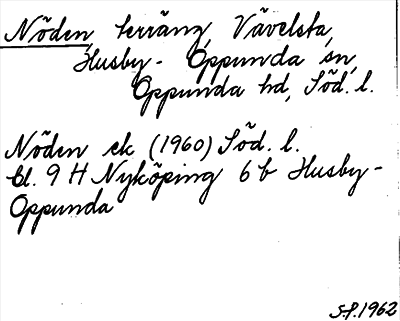 Nöden, terräng, Vävelsta,
Husby-Oppunda sn,
Oppunda hd, Söd. l.
Nöden ek (1960) Söd. l.
bl. 9 H Nyköping 6 b Husby-
Oppunda
S.P. 1962